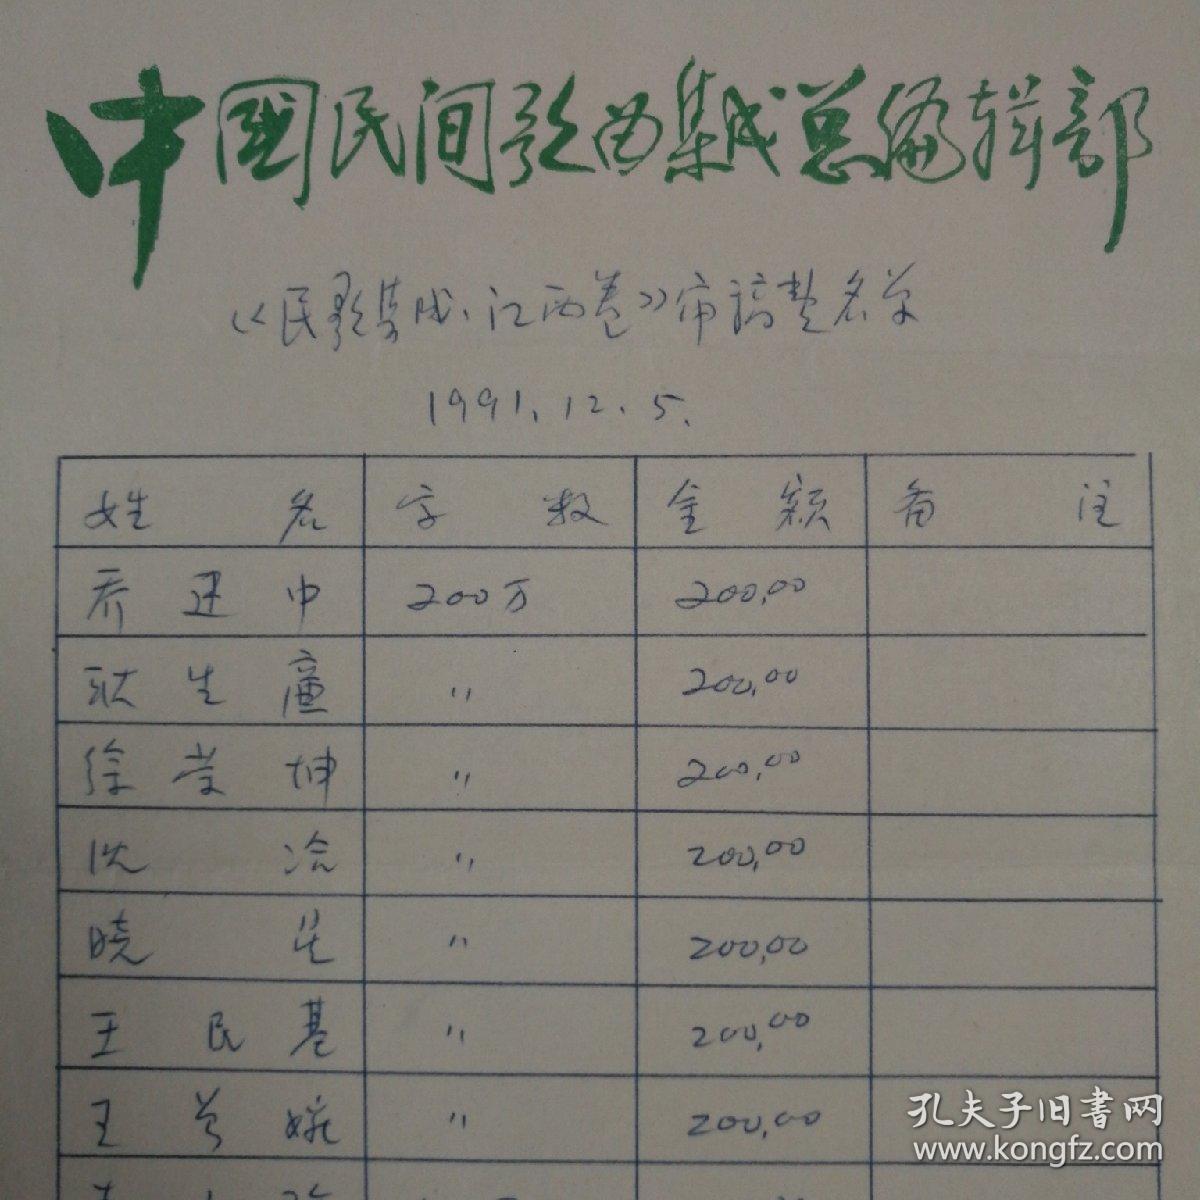 中國民间歌曲集成总编辑部
《民歌集成·江西卷》审稿费名单
1991.12.5.
姓名 字数 金额 备注
乔建中 200万 200.00
耿生廉 〃 200.00
徐荣坤 〃 200.00
沈冶 〃 200.00
晓星 〃 200.00
王民基 〃 200.00
王 〃 200.00
孔夫子旧书网
www.kongfz.com